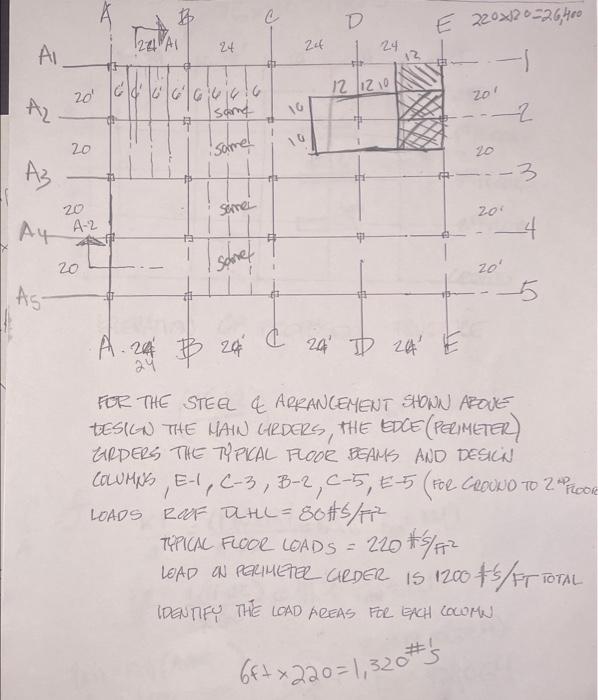 A B C D E 220x120=26,400
24 A1 24 24 24
A1 1
12
20' 6' 6' 6' 6' 6 6 6 6 12 12 10 20'
A2 same 10 2
20 same 10 20
A3 3
20 same 20'
A-2
A4 4
20 same 20'
A5 5
A 24' B 24' C 24' D 24' E
24
FOR THE STEEL & ARRANGEMENT SHOWN ABOVE
DESIGN THE MAIN GIRDERS, THE EDGE (PERIMETER)
GIRDERS THE TYPICAL FLOOR BEAMS AND DESIGN
COLUMNS, E-1, C-3, B-2, C-5, E-5 (FOR GROUND TO 2ND FLOOR
LOADS ROOF DL+LL = 80 #'S/FT²
TYPICAL FLOOR LOADS = 220 #'S/FT²
LOAD ON PERIMETER GIRDER IS 1200 #'S/FT TOTAL
IDENTIFY THE LOAD AREAS FOR EACH COLUMN
6ft x 220 = 1,320 #'S